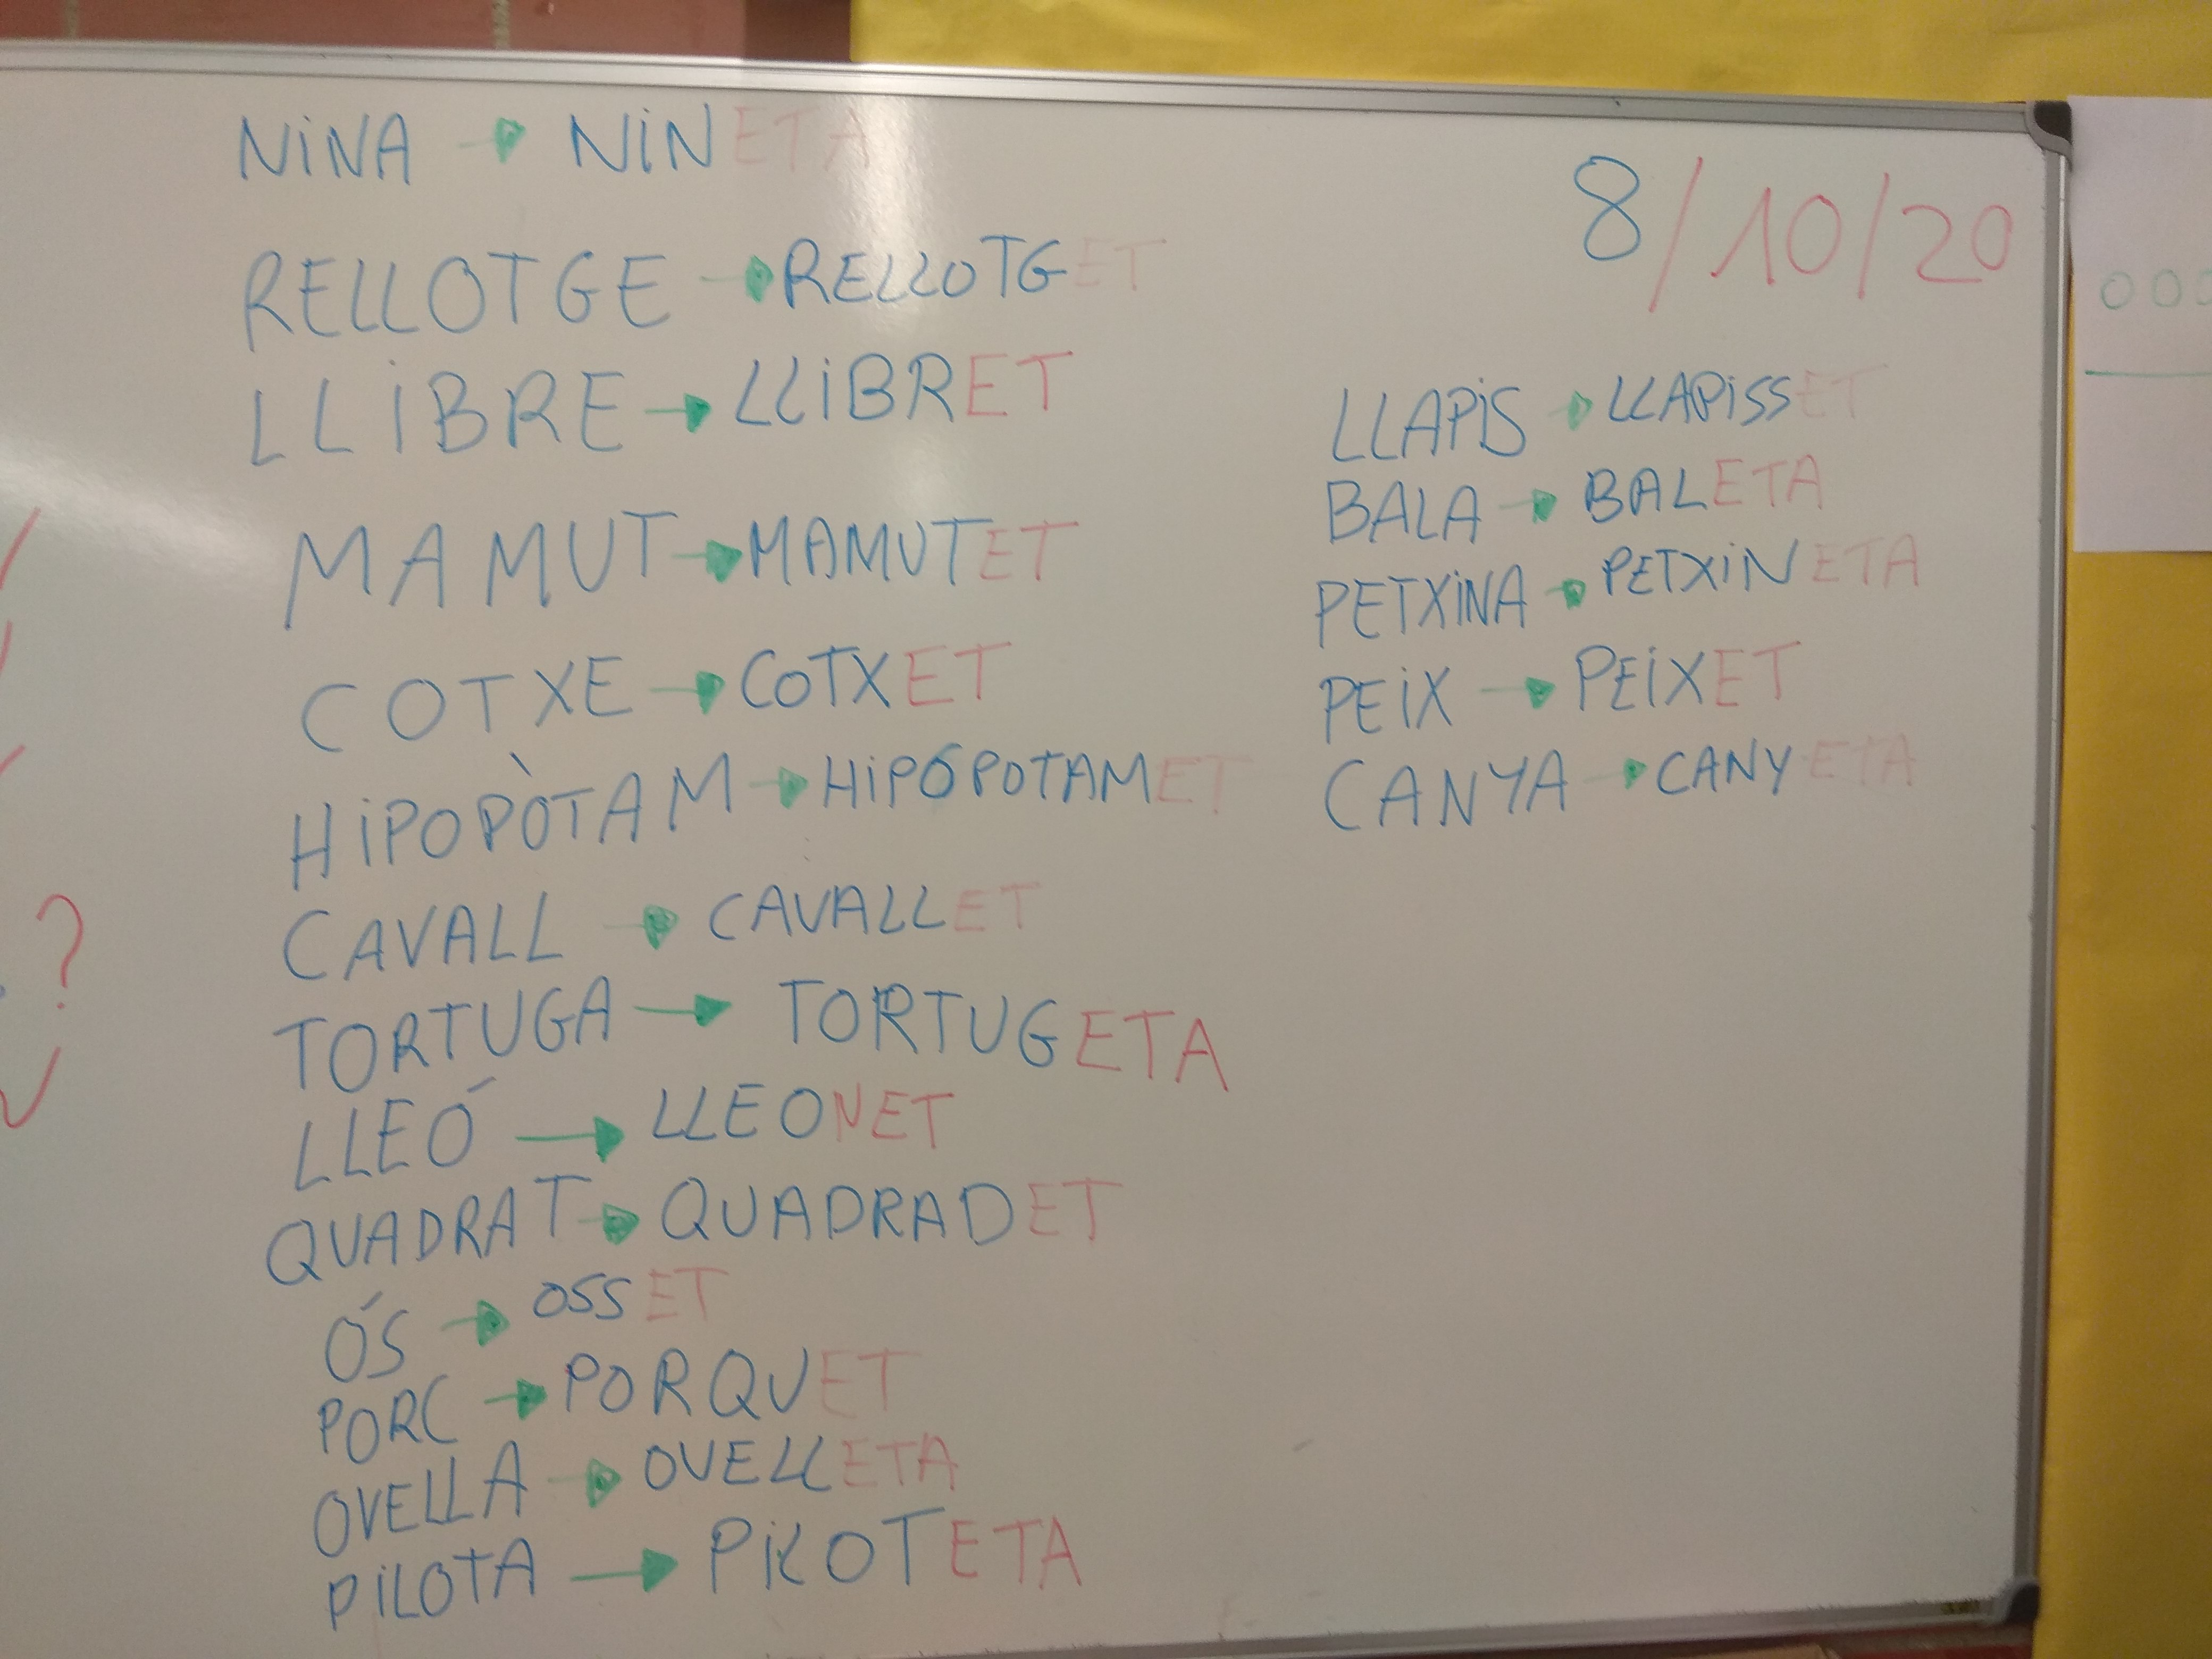 NiNA → NiNETA
RELLOTGE → RELLOTGET
LLiBRE → LLiBRET
MAMUT → MAMUTET
COTXE → COTXET
HiPOPÒTAM → HiPÓPOTAMET
CAVALL → CAVALLET
TORTUGA → TORTUGETA
LLEÓ → LLEONET
QUADRAT → QUADRADET
ÓS → OSSET
PORC → PORQUET
OVELLA → OVELLETA
PiLOTA → PiLOTETA
8/10/20
LLAPiS → LLAPiSSET
BALA → BALETA
PETXiNA → PETXiNETA
PEiX → PEiXET
CANYA → CANYETA
?
000